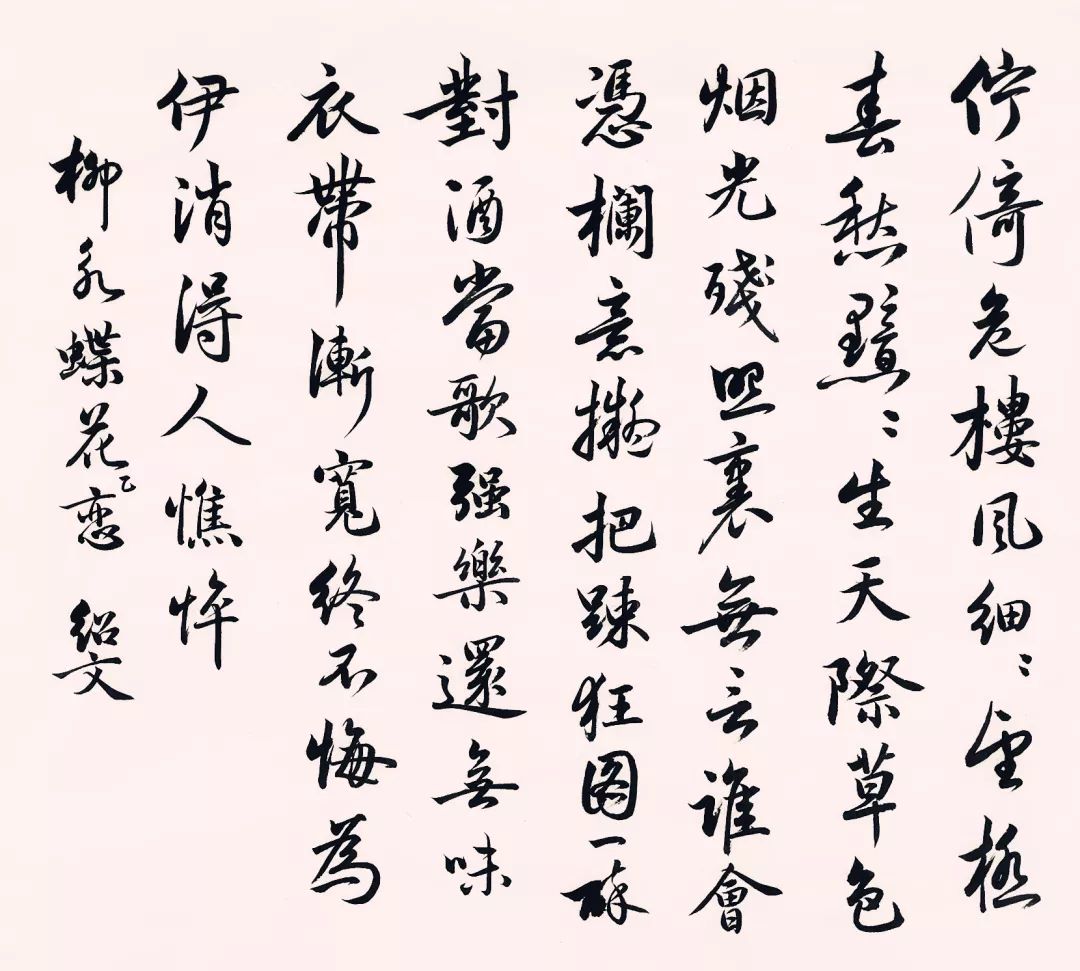 佇倚危樓風細〻望極
春愁黯〻生天際草色
烟光殘照裏無言誰會
憑欄意擬把踈狂图一醉
對酒當歌强樂還無味
衣帶漸寬終不悔為
伊消得人憔悴
柳永蝶花恋 紹文